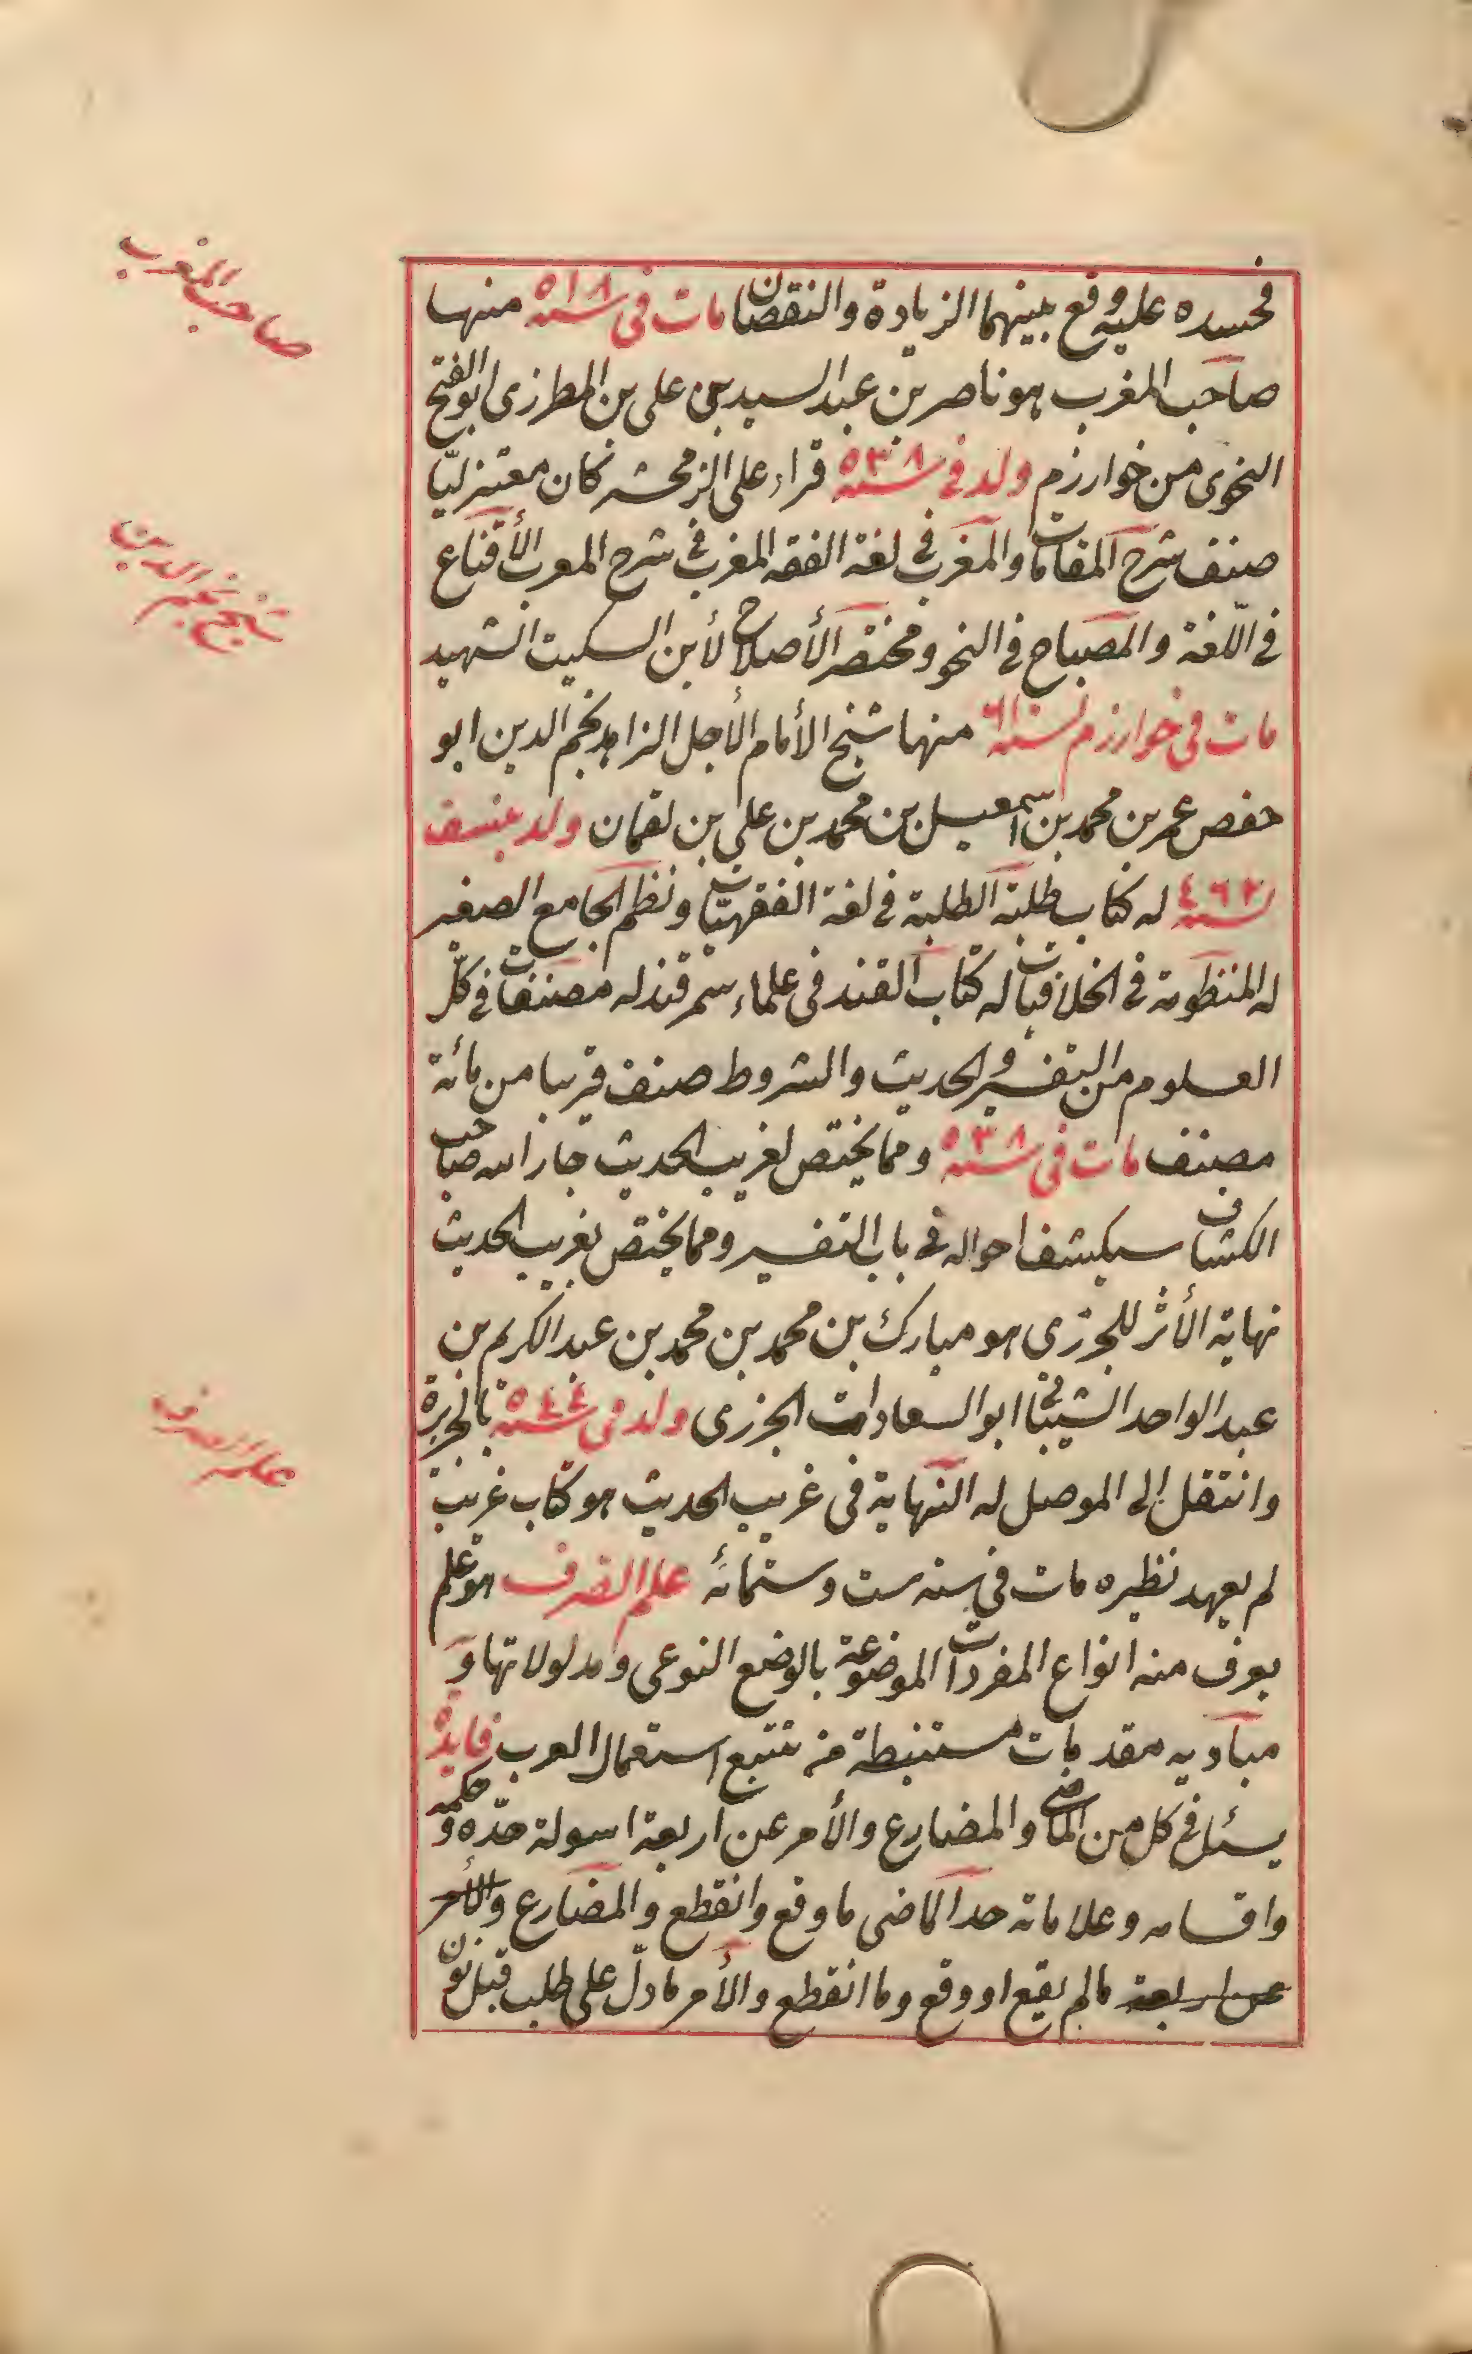 فحسده عليه وقع بينهما الزيادة والنقصان مات فى سنه ٥١٨ منها
صاحب المغرب
صاحب المغرب هو ناصر بن عبد السيد بن على بن المطرزى ابو الفتح
النحوى من خوارزم ولد فى سنه ٥٣٨ قراء على الزمخشر كان معتزليّا
صنف شرح المقامات والمغرب فى لغة الفقه المغرب فى شرح المعرب الأقناع
شيخ نجم الدين
فى اللّغة والمصباح فى النحو ومختصر الأصلاح لأبن السكيت الشهيد
مات فى خوارزم سنه منها شيخ الأمام الأجل الزاهد نجم الدين ابو
حفص عمر بن محمد بن اسمعيل بن محمد بن على بن لقمان ولد بنسف
سنه ٤٦٢ له كتاب طلبة الطلبة فى لغة الفقهيات ونظم الجامع الصغير
له المنظومة فى الخلافيات له كتاب القند فى علماء سمرقند له مصنفات فى كلّ
العلوم من التفسير والحديث والشروط صنف قريبا من مائة
مصنف مات فى سنه ٥٣٨ ومما يختص لغريب الحديث جار الله صاحب
الكشاف سيكشف احواله فى باب التفسير ومما يختص بغريب الحديث
نهاية الأثر للجزرى هو مبارك بن محمد بن محمد بن عبد الكريم بن
عبد الواحد الشيبانى ابو السعادات الجزرى ولد فى سنه ٥٤٤ بالجزيرة
علم الصرف
وانتقل الى الموصل له النهاية فى غريب الحديث هو كتاب غريب
لم يعهد نظيره مات فى سنه ست وستمائة علم الصرف هو علم
يعرف منه انواع المفردات الموضوعة بالوضع النوعى ومدلولاتها و
مباديه مقدمات مستنبطة من تتبع استعمال العرب فايدة
يسئل فى كل من الماضى والمضارع والأمر عن اربعة اسولة حدّه وحكمه
واقسامه وعلاماته حد الماضى ما وقع وانقطع والمضارع والأمر
عن اربعة مالم يقع او وقع وما انقطع والأمر مادلّ على طلب قبل نون